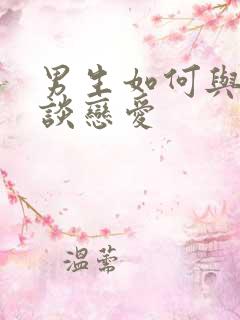 男生如何與
談戀愛
溫蕎